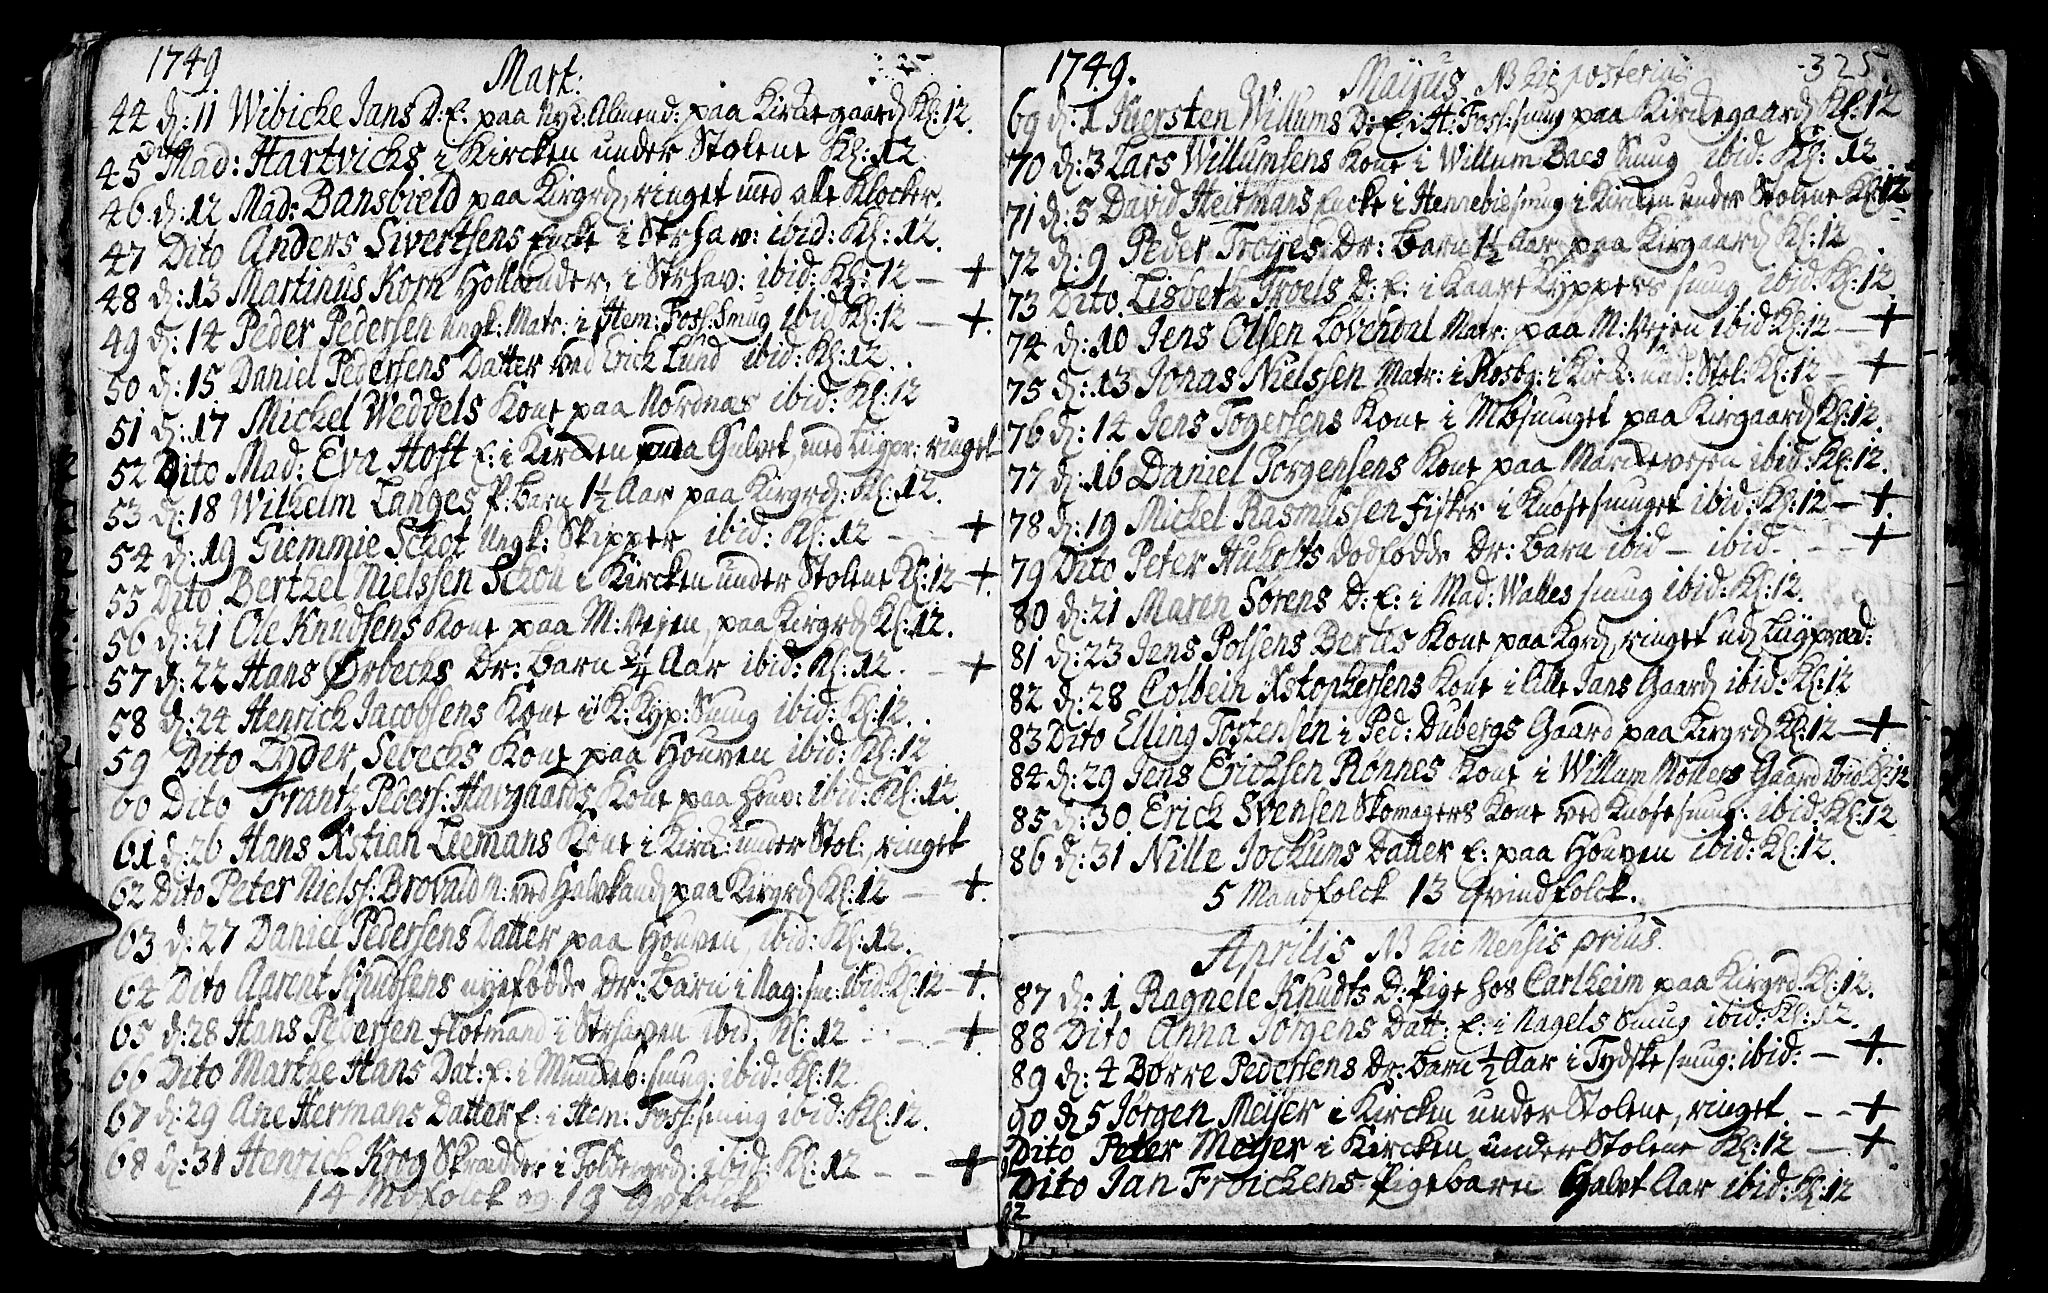 1749
Mart:
44 d: 11 Wibicke Jans D: E: paa Nye: Almend: paa Kirckegaard Kl: 12.
45 dito Mad: Hartvichs i Kircken under Stolene Kl: 12
46 d: 12 Mad: Bansvield paa Kirgrd, ringet med alle Klocker.
47 Dito Anders Sivertsens Encke i Strhav: ibid: Kl: 12.
48 d: 13 Martinus Korn Hollænder, i Strhav: ibid: Kl: 12 — +
49 d: 14 Peder Pedersen ungk: Matr: i Hem: Foss: Smug ibid Kl: 12 — +.
50 d: 15 Daniel Pedersens Datter ved Erich Lund ibid: Kl: 12.
51 d: 17 Mickel Weddels Kone paa Nordnæs ibid: Kl: 12
52 Dito Mad: Eva Hoft E: i Kircken paa Gulvet, med Liigpr: ringet
53 d: 18 Wilhelm Langes P: barn 1½ Aar paa Kirgrd: Kl: 12.
54 d: 19 Giemmie Schot Ungk: Skipper ibid: Kl: 12 — — +
55 Dito Berthel Nielssen Schou i Kircken under Stolene Kl: 12 — +.
56 d: 21 Ole Knudsens Kone paa M: Veyen, paa Kirgrd Kl: 12.
57 d: 22 Hans Ørbechs Dr: barn ¾ Aar ibid: Kl: 12. — +
58 d: 24 Henrich Jacobsens Kone i K: Kyp: Smug ibid: Kl: 12.
59 Dito Lyder Sevechs Kone paa Houven ibid: Kl: 12
60 Dito Frantz Peders: Havgaards Kone paa Houv: ibid: Kl: 12.
61 d: 26 Hans Xstian Leemans Kone i Kirck: under Stol:, ringet
62 Dito Peter Nielss: Brovald M: ved Halvkand paa Kirgrd Kl: 12 — +.
63 d: 27 Daniel Pedersens Datter paa Houven, ibid: Kl: 12.
64 Dito Aarent Knudsens nyefødde Dr: Barn i Nag: sm: ibid: Kl: 12 — +.
65 d: 28 Hans Pedersen flotmand i Strhaven ibid: Kl: 12 — — +
66 Dito Marthe Hans Dat: E: i Munckeb: smug: ibid: Kl: 12.
67 d: 29 Ane Hermans Datter E: i Hem: Foss: smug ibid: Kl: 12.
68 d: 31 Henrich Krog Skrædder i Toldergrd: ibid: Kl: 12 — — +
14 Mdfolck og 19 qvfolck
1749.
Majus NB hic posterius
325.
69 d: 1 Kiersten Willums D: E: i H: Foss: smug paa Kirckegaard Kl: 12
70 d: 3 Lars Willumsens Kone i Willum Baes Smug ibid: Kl: 12
71 d: 5 David Heitmans Encke i Hennebiesmug i Kircken under Stolene Kl: 12
72 d: 9 Peder Troyes Dr: barn 1½ Aar paa Kirgaard Kl: 12
73 Dito Lisbeth Troels D: E: i Kaare Kyppers smug ibid: Kl: 12
74 d: 10 Jens Olsen Lovendal Matr: paa M: Veyen ibid: Kl: 12 — +
75 d: 13 Jonas Nielssen Matr: i Rosbg: i Kirck: und: Stol: Kl: 12 — +
76 d: 14 Jens Togersens Kone i Mbsmuget paa Kirgaard Kl: 12.
77 d: 16 Daniel Jorgensens Kone paa Marckeveyen ibid: Kl: 12.
78 d: 19 Mickel Rasmussen Fisker i Knosesmuget ibid: Kl: 12 — +.
79 Dito Peter Huholts dodfødde Dr: barn ibid — ibid. — — +
80 d: 21 Maren Sørens D: E: i Mad: Walles smug ibid: Kl: 12.
81 d: 23 Jens Polsens Berles Kone paa Kgrd, ringet ud Liigpræd:
82 d: 28 Colbein Xstophersens Kone i lille Jans Gaard ibid: Kl: 12
83 Dito Elling Tostensen i Ped: Dubergs Gaard paa Kirgrd Kl: 12 — +
84 d: 29 Jens Ericksen Rønnes Kone i Willum Mollers Gaard ibid: Kl: 12
85 d: 30 Erick Svensen Skomagers Kone ved Knosesmug: ibid: Kl: 12
86 d: 31 Nille Jockums Datter E: paa Houven ibid: Kl: 12.
5 Mandfolck 13 Qvindfolck.
Aprilis NB hic Mensis prius.
87 d: 1, Ragnele Knudts D: Pige hos Carlheim paa Kirgrd Kl: 12.
88 Dito Anna Jørgens Datt: E: i Nagels Smug ibid: Kl: 12.
89 d: 4 Børre Pedersens Dr: barn ½ Aar i Tydskesmug: ibid: — +.
90 d 5 Jørgen Meyer i Kircken under Stolene, ringet — — +
91 Dito Peter Meyer i Kircken under Stolene Kl: 12 — +
92 Dito Jan Froichens Pigebarn halvt Aar ibid: Kl: 12